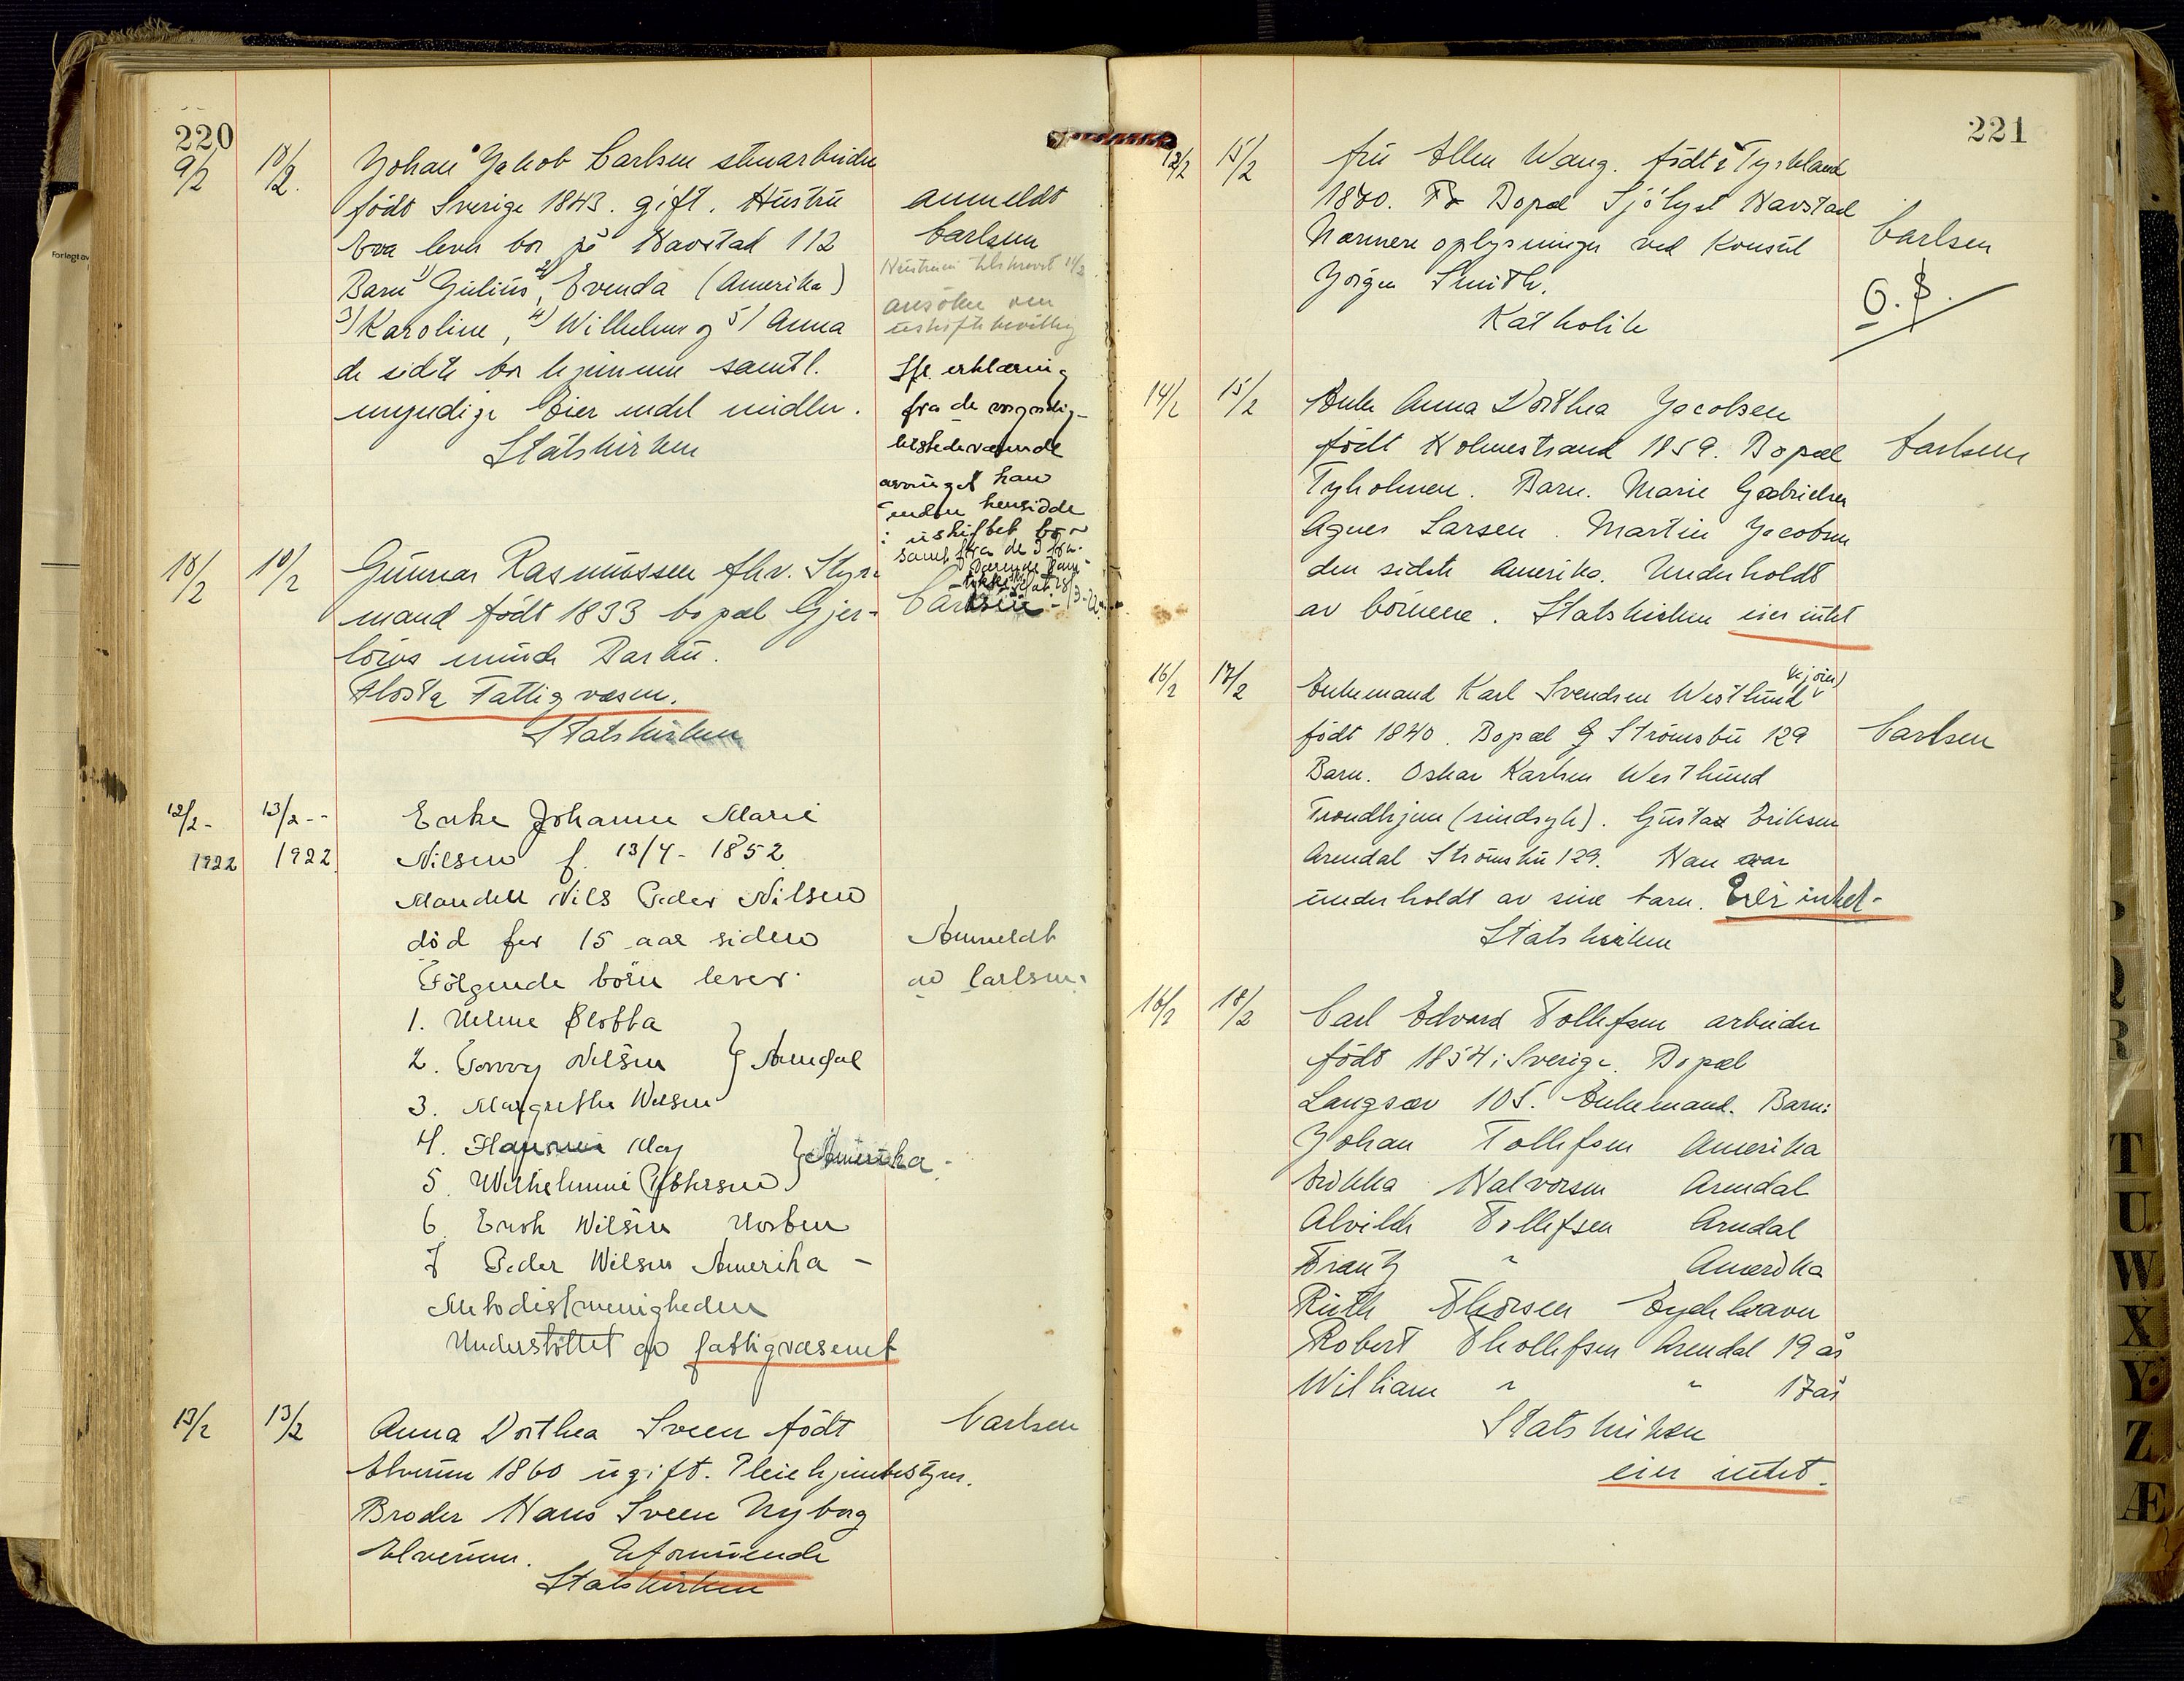 220
9/2 10/2. Johan Jakob Carlsen stenarbeider
født Sverige 1843. gift. Hustru
Eva lever bor på Havstad 112
Barn 1) Gulius, 2) Evenda (Amerika)
3) Karoline, 4) Wilhelm og 5) Anna
de sidste bor hjemme samtl.
myndige Eier endel midler.
Statskirken
anmeldt
Carlsen
Hustruen tilskrevet 14/2
ansøke om
uskiftebevilling
Ifl. erklæring
fra de myndig-
herstedsværende
arvinger kan
enken hensidde
i uskiftet bo
samt fra de
10/2 10/2 Gunnar Rasmussen fhv. Styr-
mand født 1833 bopæl Gjer-
løws minde Barbu.
Flosta Fattigvæsen.
Statskirken
Carlsen
12/2- 13/2-- Enke Johanne Marie
1922 1922 Nilsen f. 13/4- 1852
Manden Nils Peder Nilsen
død for 15 aar siden
Følgende børn lever
1. Helene Slotta
2. Conny Nilsen } Arendal
3. Margrethe Nilsen
4. May } Amerika-
5. Wilhelmine
6. Nilsen
7 Peder Nilsen Amerika -
Metodistmenigheden
Understöttet av fattigvæsenet
Anmeldt
av Carlsen.
13/2 13/2 Anna Dorthea Sveen født
Elverum 1860 ugift. Pleiehjembestyrer.
Broder Hans Sveen Nyborg
Elverum. Uformuende
Statskirken
Carlsen
221
12/2 15/2 fru Ellen Wang. født i Tyskland
1870. Bopæl Sjölyst Havstad
Nærmere oplysninger ved Konsul
Jörgen Smith.
Katholik
Carlsen
O. S.
14/2 15/2 Enke Anna Dorthea Jacobsen
født Holmestrand 1859. Bopæl
Tyholmen. Barn. Marie Gabrielsen
Agnes Larsen. Martin Jacobsen
den sidste Amerika. Underholdt
av börnene. Statskirken eier intet
Carlsen
16/2 17/2 Enkemand Karl Svendsen Westlund
født 1840. Bopæl G Strömsbu 129
Barn. Oskar Karlsen Westlund
Trondhjem (sindsyk). Gustav Eriksen
Arendal Strömsbu 129. Han var
underholdt av sine barn. Eier intet-
Statskirken
Carlsen
16/2 18/2 Carl Edvard Tollefsen arbeider
født 1854 i Sverige. Bopæl
Langsæv 105. Enkemand. Barn:
Johan Tollefsen Amerika
Halvorsen Arendal
Alvilde Tollefsen Arendal
Frantz " Amerika
Ruth Thorsen Eydehavn
Robert Thollefsen Arendal 19 år
William " " 17 år
Statskirken
eier intet.